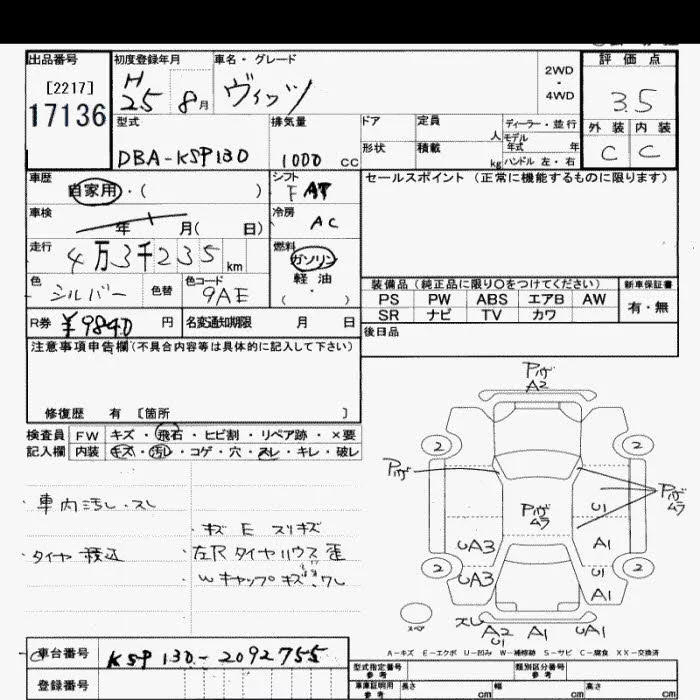 出品番号
[2217]
17136
初度登録年月
H
25 8月
車名・グレード
ヴィッツ
2WD
・
4WD
評価点
3.5
外装 内装
C C
型式
DBA-KSP130
排気量
1000 cc
ドア
定員
人
形状
積載
kg
ディーラー・並行
モデル
年式 年
ハンドル 左・右
車歴
自家用・( )
シフト
F AT
セールスポイント (正常に機能するものに限ります)
車検
年 月( 日)
冷房
AC
走行
4万3千235 km
燃料
ガソリン
軽油
( ・ )
色
シルバー
色替
色コード
9AE
装備品 (純正品に限り〇をつけてください)
PS PW ABS エアB AW
SR ナビ TV カワ
新車保証書
有・無
R券
¥9840 円
名変通知期限 月 日
後日品
注意事項申告欄(不具合内容等は具体的に記入して下さい)
修復歴 有 [箇所 ]
検査員
記入欄
FW キズ・飛石・ヒビ割・リペア跡・×要
内装 キズ・汚し・コゲ・穴・スレ・キレ・破レ
・車内汚し・スレ
・キズ E スリキズ
・タイヤ積込
・左R タイヤハウス歪
Wキャップキズ、ワレ
Pﾊｹﾞ
A2
2 2
Pﾊｹﾞ
Pﾊｹﾞ
ムラ
U1
Pﾊｹﾞ
ムラ
UA3
A1
2 2
UA3
U1
A1
スペア
スレ
A2
U1
A1
UA1
A－キズ E－エクボ U－凹み W－補修跡 S－サビ C－腐食 XX－交換済
車台番号
KSP130-2092755
登録番号
型式指定番号
参考
類別区分番号
参考
車庫証明用
参考
長さ cm
幅 cm
高さ cm